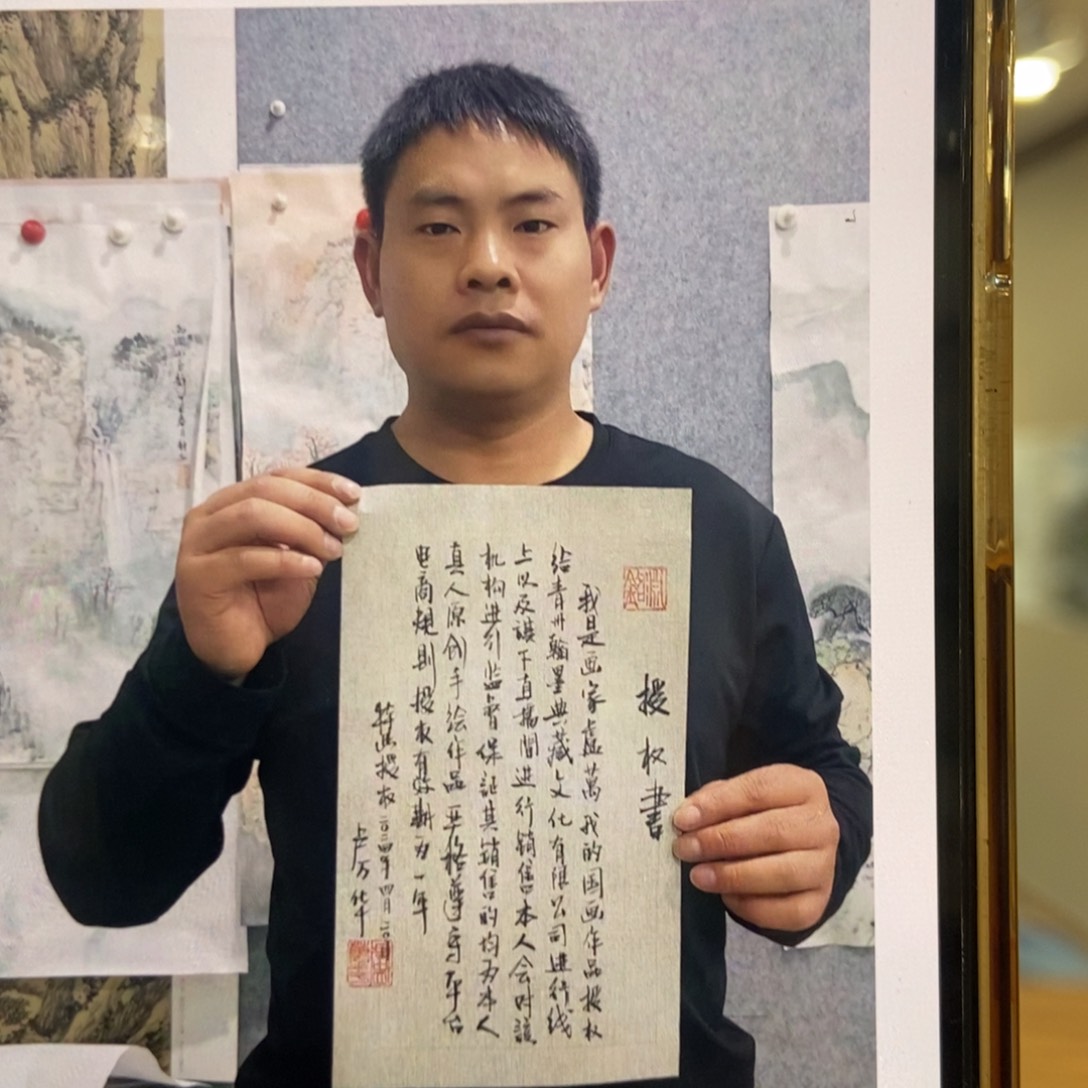 授权书
我是画家盧萬我的国画作品授权
给青州翰墨典藏文化有限公司進行线
上以及下直播間進行销售本人会对該
机构進行监督保证其销售的均为本人
真人原创手绘作品严格遵守平台
电商规则授权有效期为一年
特此授权二〇二四年四月二〇日
卢万华